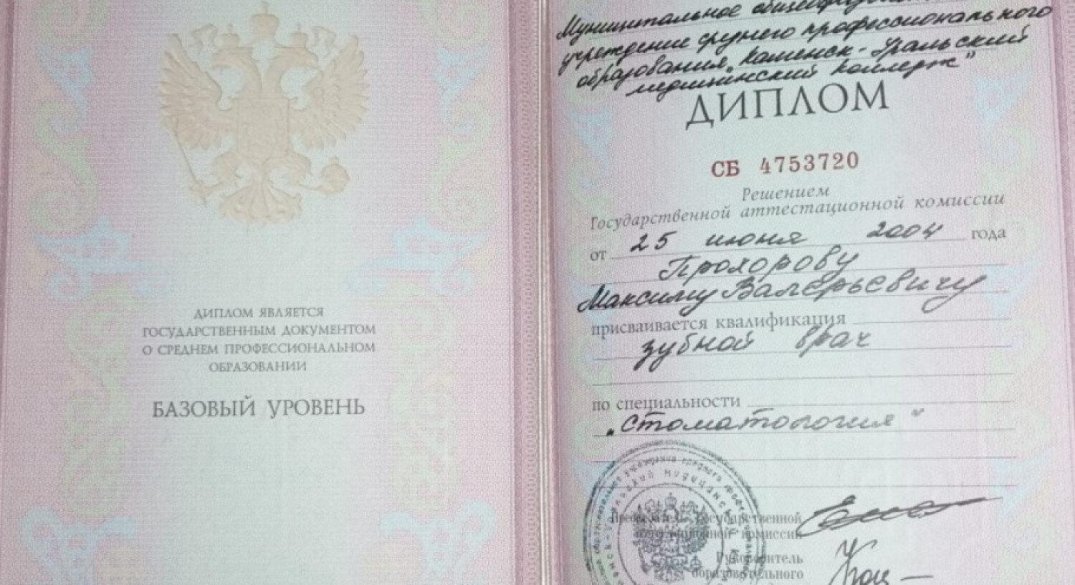 ДИПЛОМ ЯВЛЯЕТСЯ
ГОСУДАРСТВЕННЫМ ДОКУМЕНТОМ
О СРЕДНЕМ ПРОФЕССИОНАЛЬНОМ
ОБРАЗОВАНИИ
БАЗОВЫЙ УРОВЕНЬ
Муниципальное
учреждение среднего профессионального
образования „Каменск-Уральский
медицинский колледж"
ДИПЛОМ
СБ 4753720
Решением
Государственной аттестационной комиссии
от 25 июня 2004 года
Прохорову
Максиму Валерьевичу
присваивается квалификация
зубной врач
по специальности
„Стоматология"
Государственной
комиссии
Руководитель
образовательного